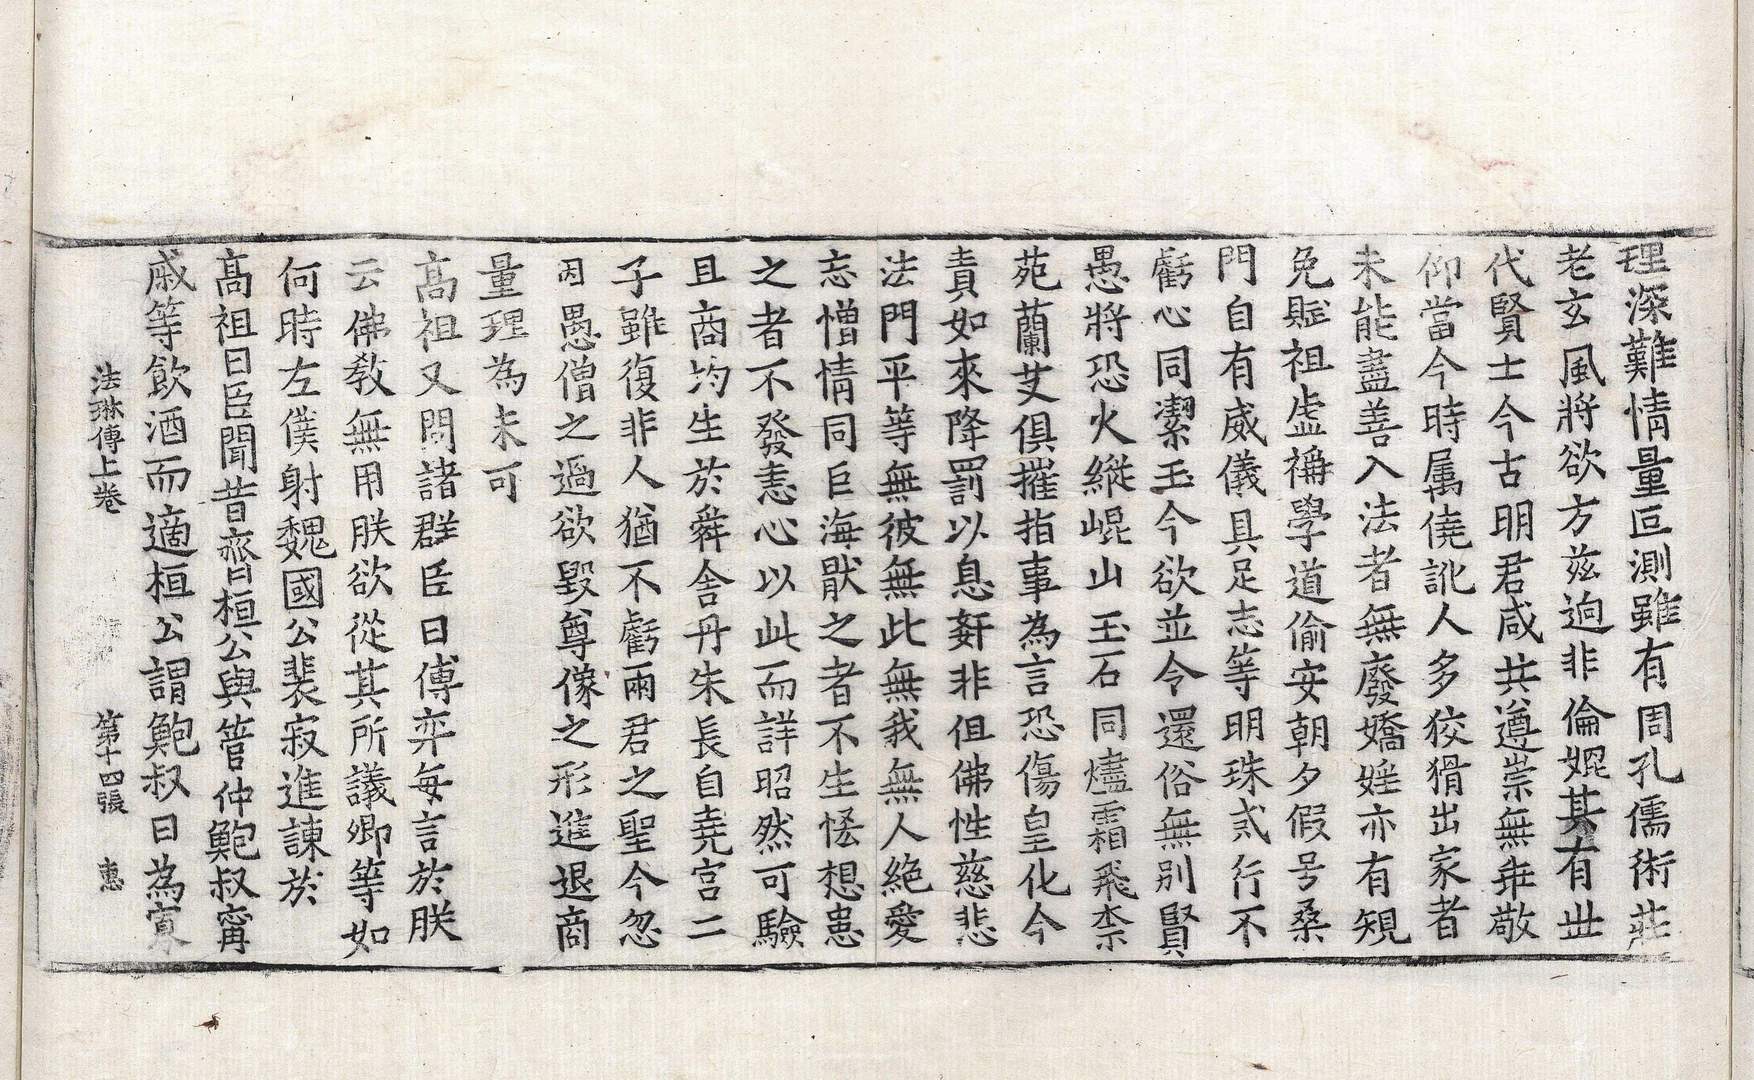 理深難情量叵測雖有周孔儒術莊
老玄風將欲方茲迥非倫媲其有世
代賢士今古明君咸共遵崇無乖敬
仰當今時属僥訛人多狡猾出家者
未能盡善入法者無廢嬌婬亦有規
免賦祖虛禣學道偷安朝夕假号桑
門自有威儀具足志等明珠貳行不
虧心同潔玉今欲並令還俗無別賢
愚將恐火縱崐山玉石同燼霜飛柰
苑蘭艾俱摧指事為言恐傷皇化今
責如來降罰以息姧非但佛性慈悲
法門平等無彼無此無我無人絶愛
忘憎情同巨海猒之者不生怪想恚
之者不發恚心以此而詳昭然可驗
且商均生於舜舍丹朱長自堯宮二
子雖復非人猶不虧兩君之聖今忽
因愚僧之過欲毀尊像之形進退商
量理為未可
高祖又問諸群臣曰傅弈每言於朕
云佛教無用朕欲從其所議卿等如
何時左僕射魏國公裴寂進諫於
高祖曰臣聞昔齊桓公與管仲鮑叔甯
戚等飲酒而適桓公謂鮑叔曰為寡
法琳傳上卷 第十四張 惠